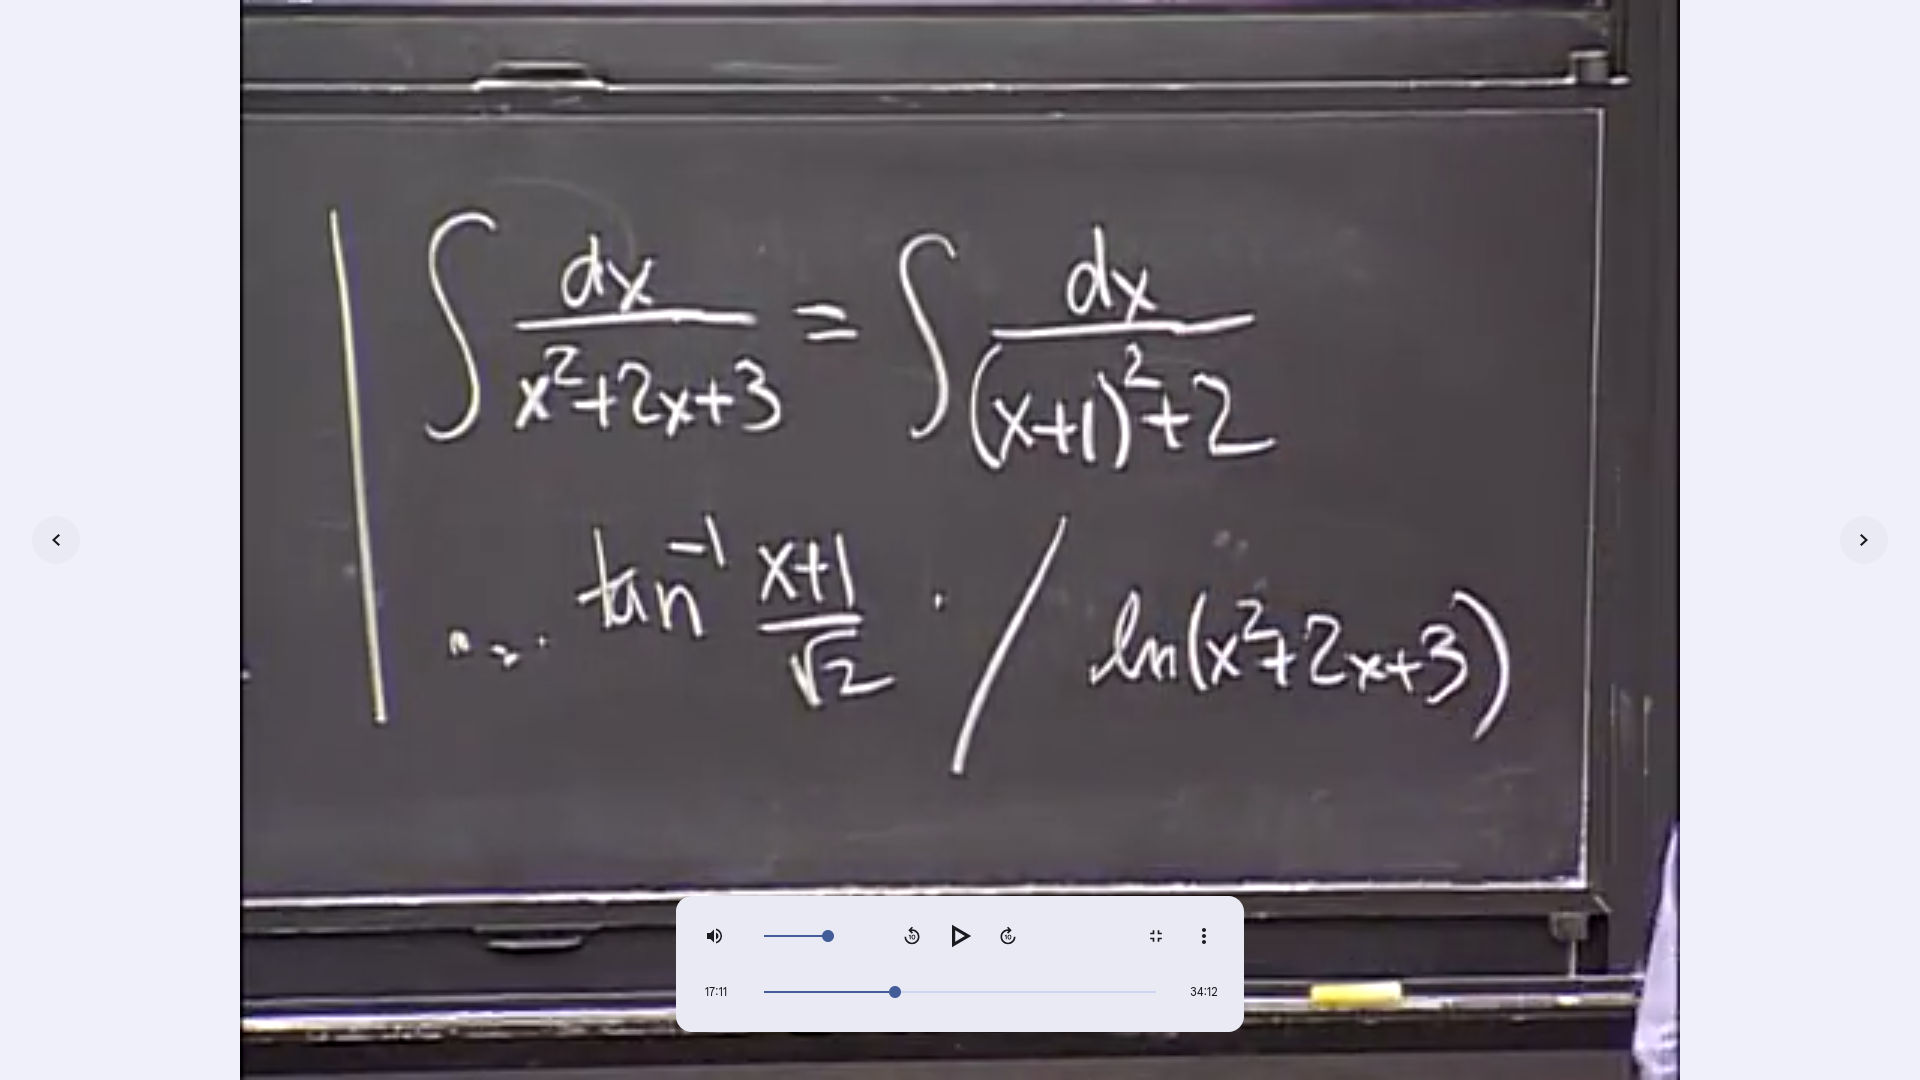 ∫ dx/(x²+2x+3) = ∫ dx/((x+1)²+2)
tan⁻¹ (x+1)/√2 / ln(x²+2x+3)
17:11 34:12